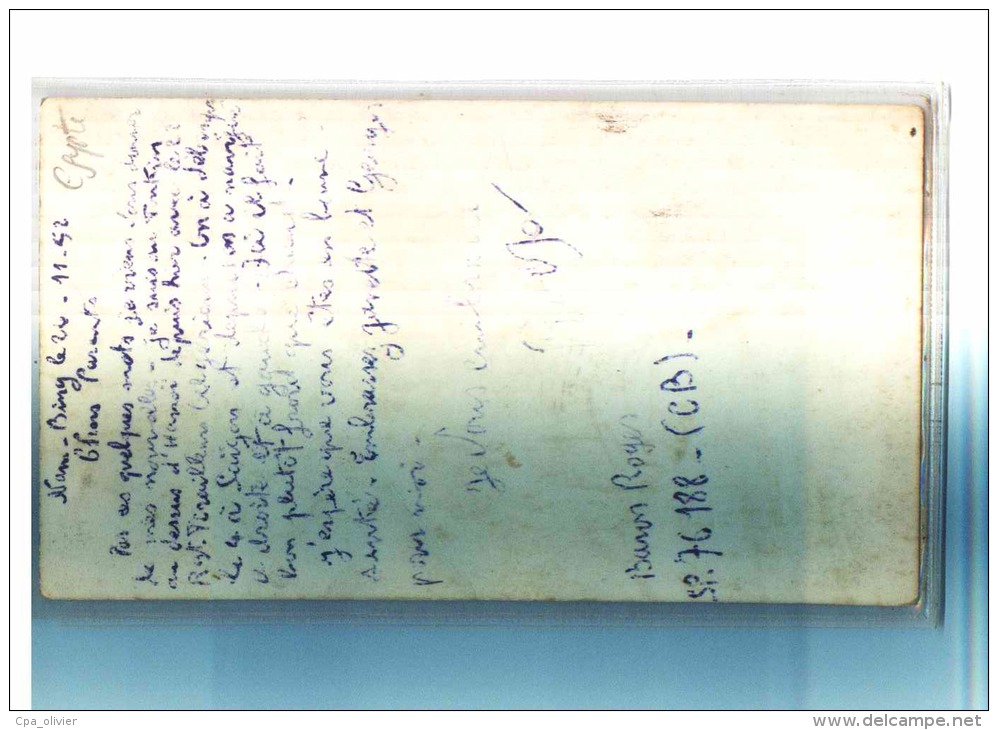 Nam-Binh le 20-11-52
Egypte
Chers Parents
Par ces quelques mots je viens vous donner
de mes nouvelles - je suis au Tonkin
au dessus d'Hanoï depuis hier avec le 22
Rgt. Tirailleurs Algériens. On a débarqué
le 4 à Saïgon et depuis on a navigué
a droite et a gauche. Ici il fait
bon plutôt froid que chaud.
J'espère que vous êtes en bonne
santé. Embrassez Ginette et Georges
pour moi.
Je vous embrasse
Baron Roger
SP. 76 188 - (CB) -
Cpa_olivier
www.delcampe.net